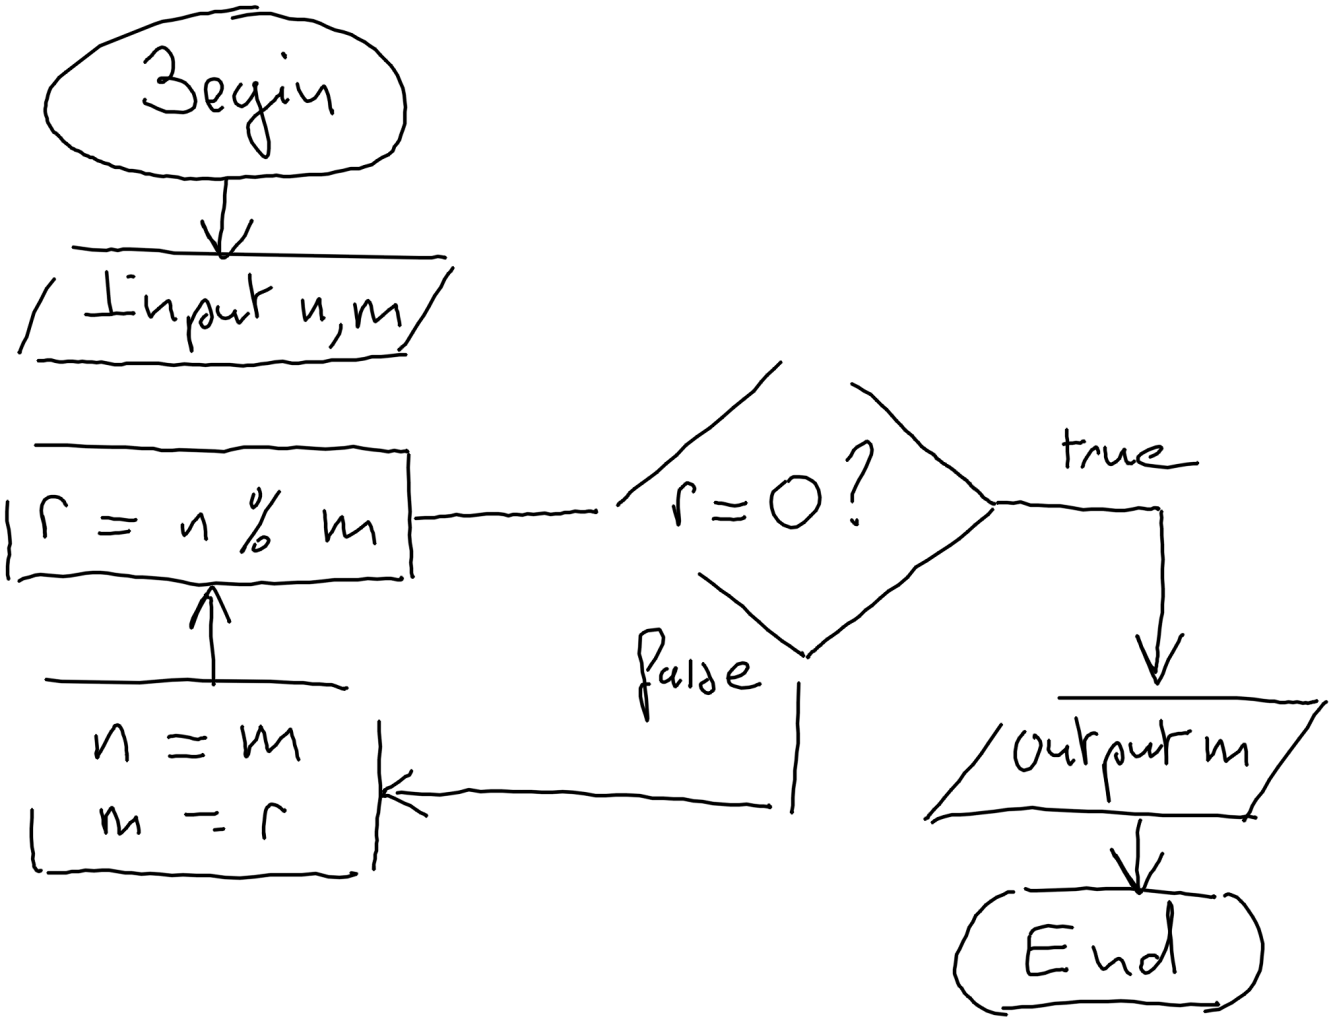 Begin
Input n, m
r = n % m
r = 0?
true
false
n = m
m = r
Output m
End